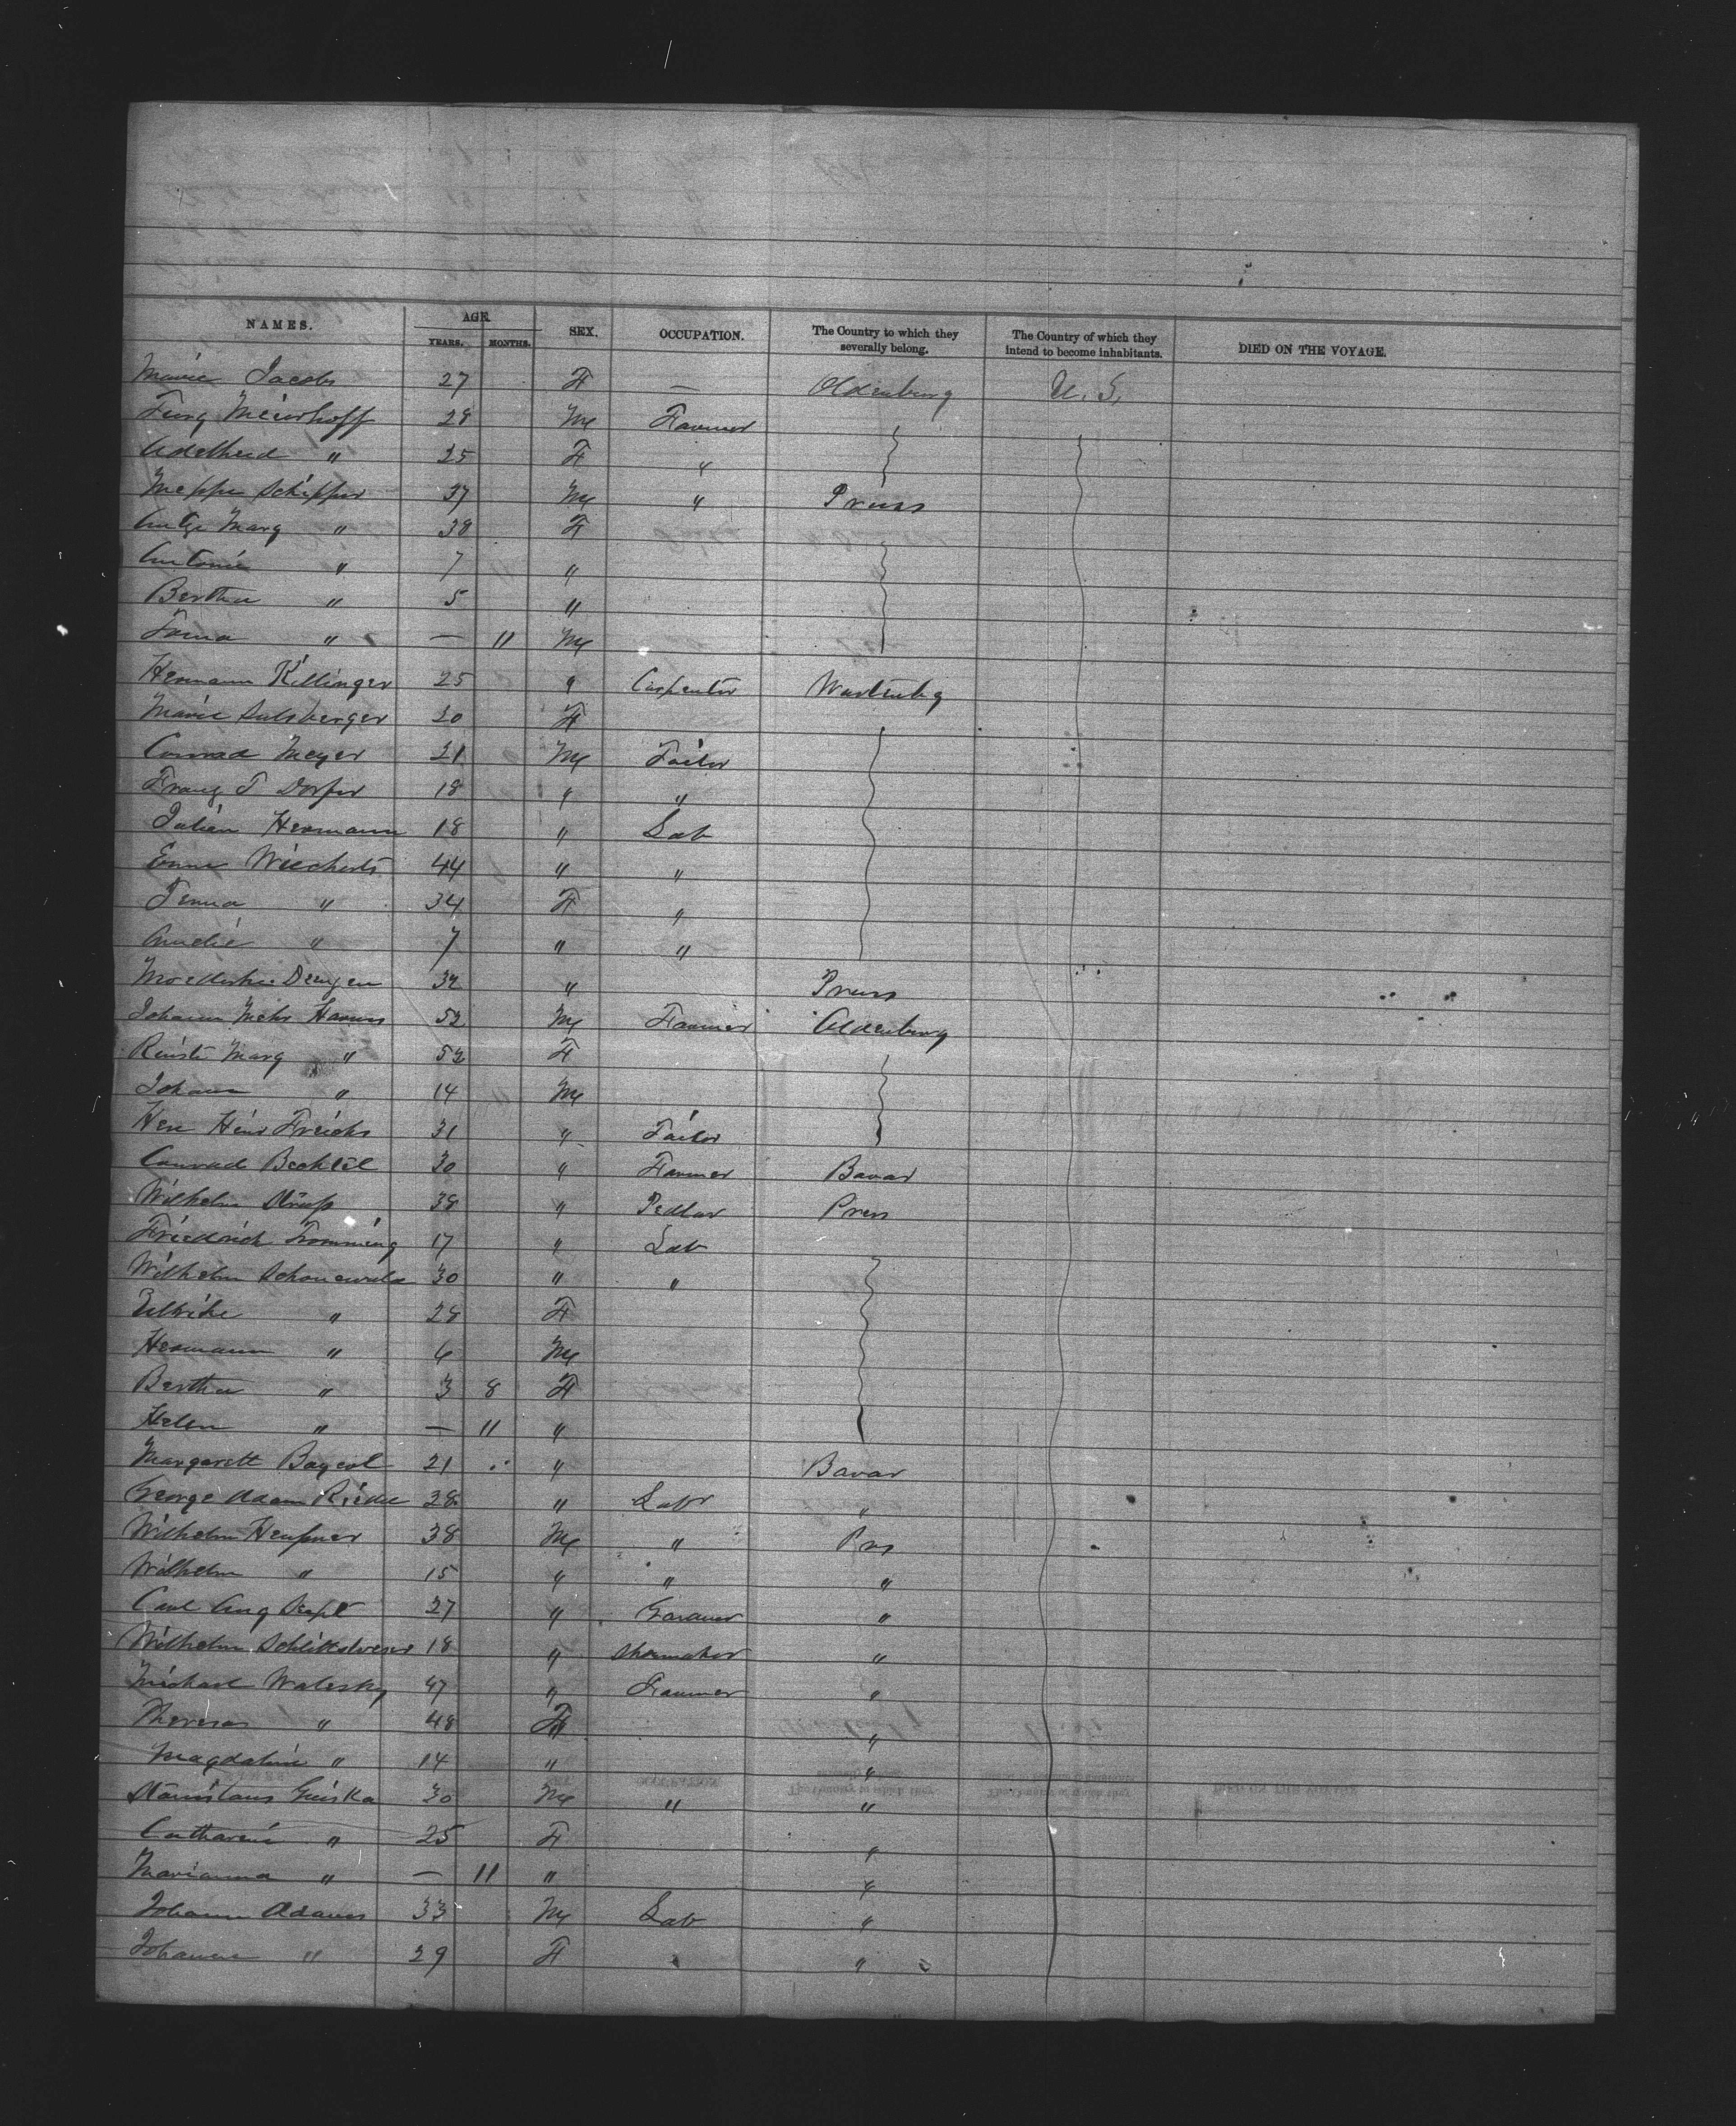 NAMES. AGE. SEX. OCCUPATION. The Country to which they severally belong. The Country of which they intend to become inhabitants. DIED ON THE VOYAGE.
YEARS. MONTHS.
Marie Jacobs 27 F — Oldenburg U.S.
Meierhoff 28 M Farmer
Adelheid " 25 F "
Schipper 37 M " Pruss
Marg " 38 F
Antonie " 7 "
Bertha " 5 "
" — 11 M
Hermann Killinger 25 " Carpenter Wurtenbg
Marie Sulsberger 20 F
Conrad Meyer 21 M Tailor
Franz T Dorfer 18 " "
Hermann 18 " Lab
Wiecherts 44 " "
" 34 F "
" 7 " "
32 " Pruss
Johann Harms 52 M Farmer Oldenburg
Marg " 52 F
Johann " 14 M
Herm Hein Freichs 31 " Tailor
Conrad Bechtel 30 " Farmer Bavar
Wilhelm 38 " Pedlar Prus
Friedrich Fromming 17 " Lab
Wilhelm Schonewald 30 " "
Ullrike " 28 F
Hermann " 6 M
Bertha " 3 8 F
Helen " — 11 "
Margareth 21 " Bavar
George Adam Riedel 28 " Labr "
Wilhelm 38 M " Prs
Wilhelm " 15 " " "
Carl Aug 27 " Gardner "
Wilhelm 18 " Shoemaker "
Michael Walesky 47 " Farmer "
Theresa " 48 F "
Magdalene " 14 " "
Stanislaus 30 M " "
Catharine " 25 F "
Marianna " — 11 " "
Johann Adams 33 M Lab "
Johanne " 29 F "